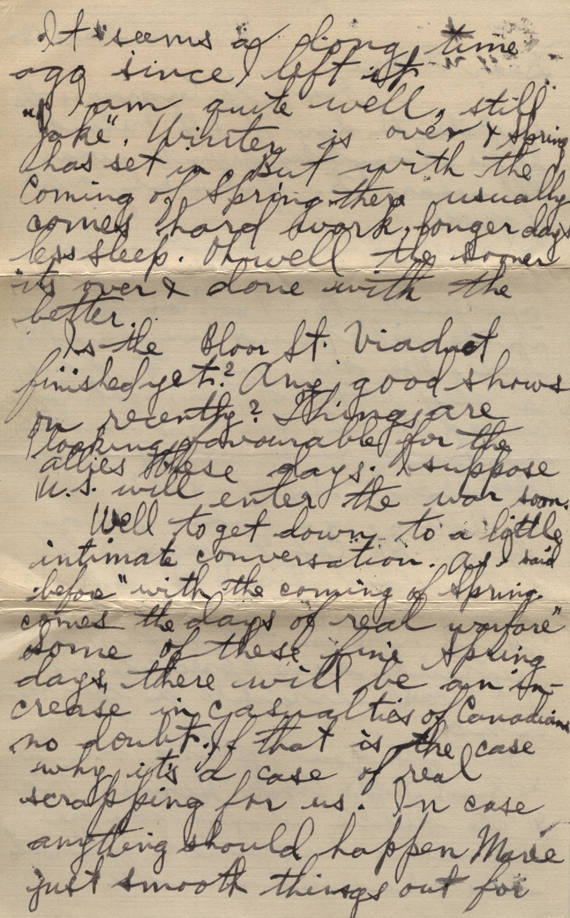 It seems a long time
ago since I left it.
I am quite well, still
"Jake". Winter is over & Spring
has set in. But with the
coming of Spring there usually
comes hard work, longer days
less sleep. Oh well the sooner
its over & done with the
better.
Is the Bloor St. Viaduct
finished yet? Any good shows
on recently? Things are
looking favourable for the
allies these days. I suppose
U.S. will enter the war soon.
Well to get down to a little
intimate conversation. As I said
before "with the coming of Spring
comes the days of real warfare"
Some of these fine Spring
days, there will be an in-
crease in casualties of Canadians
no doubt. If that is the case
why it's a case of real
scrapping for us. In case
anything should happen Marie
just smooth things out for